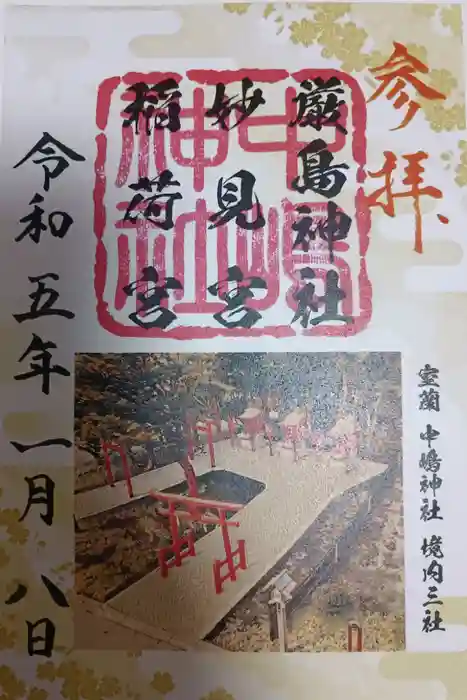 参拝
厳島神社
妙見宮
稲荷宮
中嶋神社
室蘭 中嶋神社 境内三社
令和五年一月八日